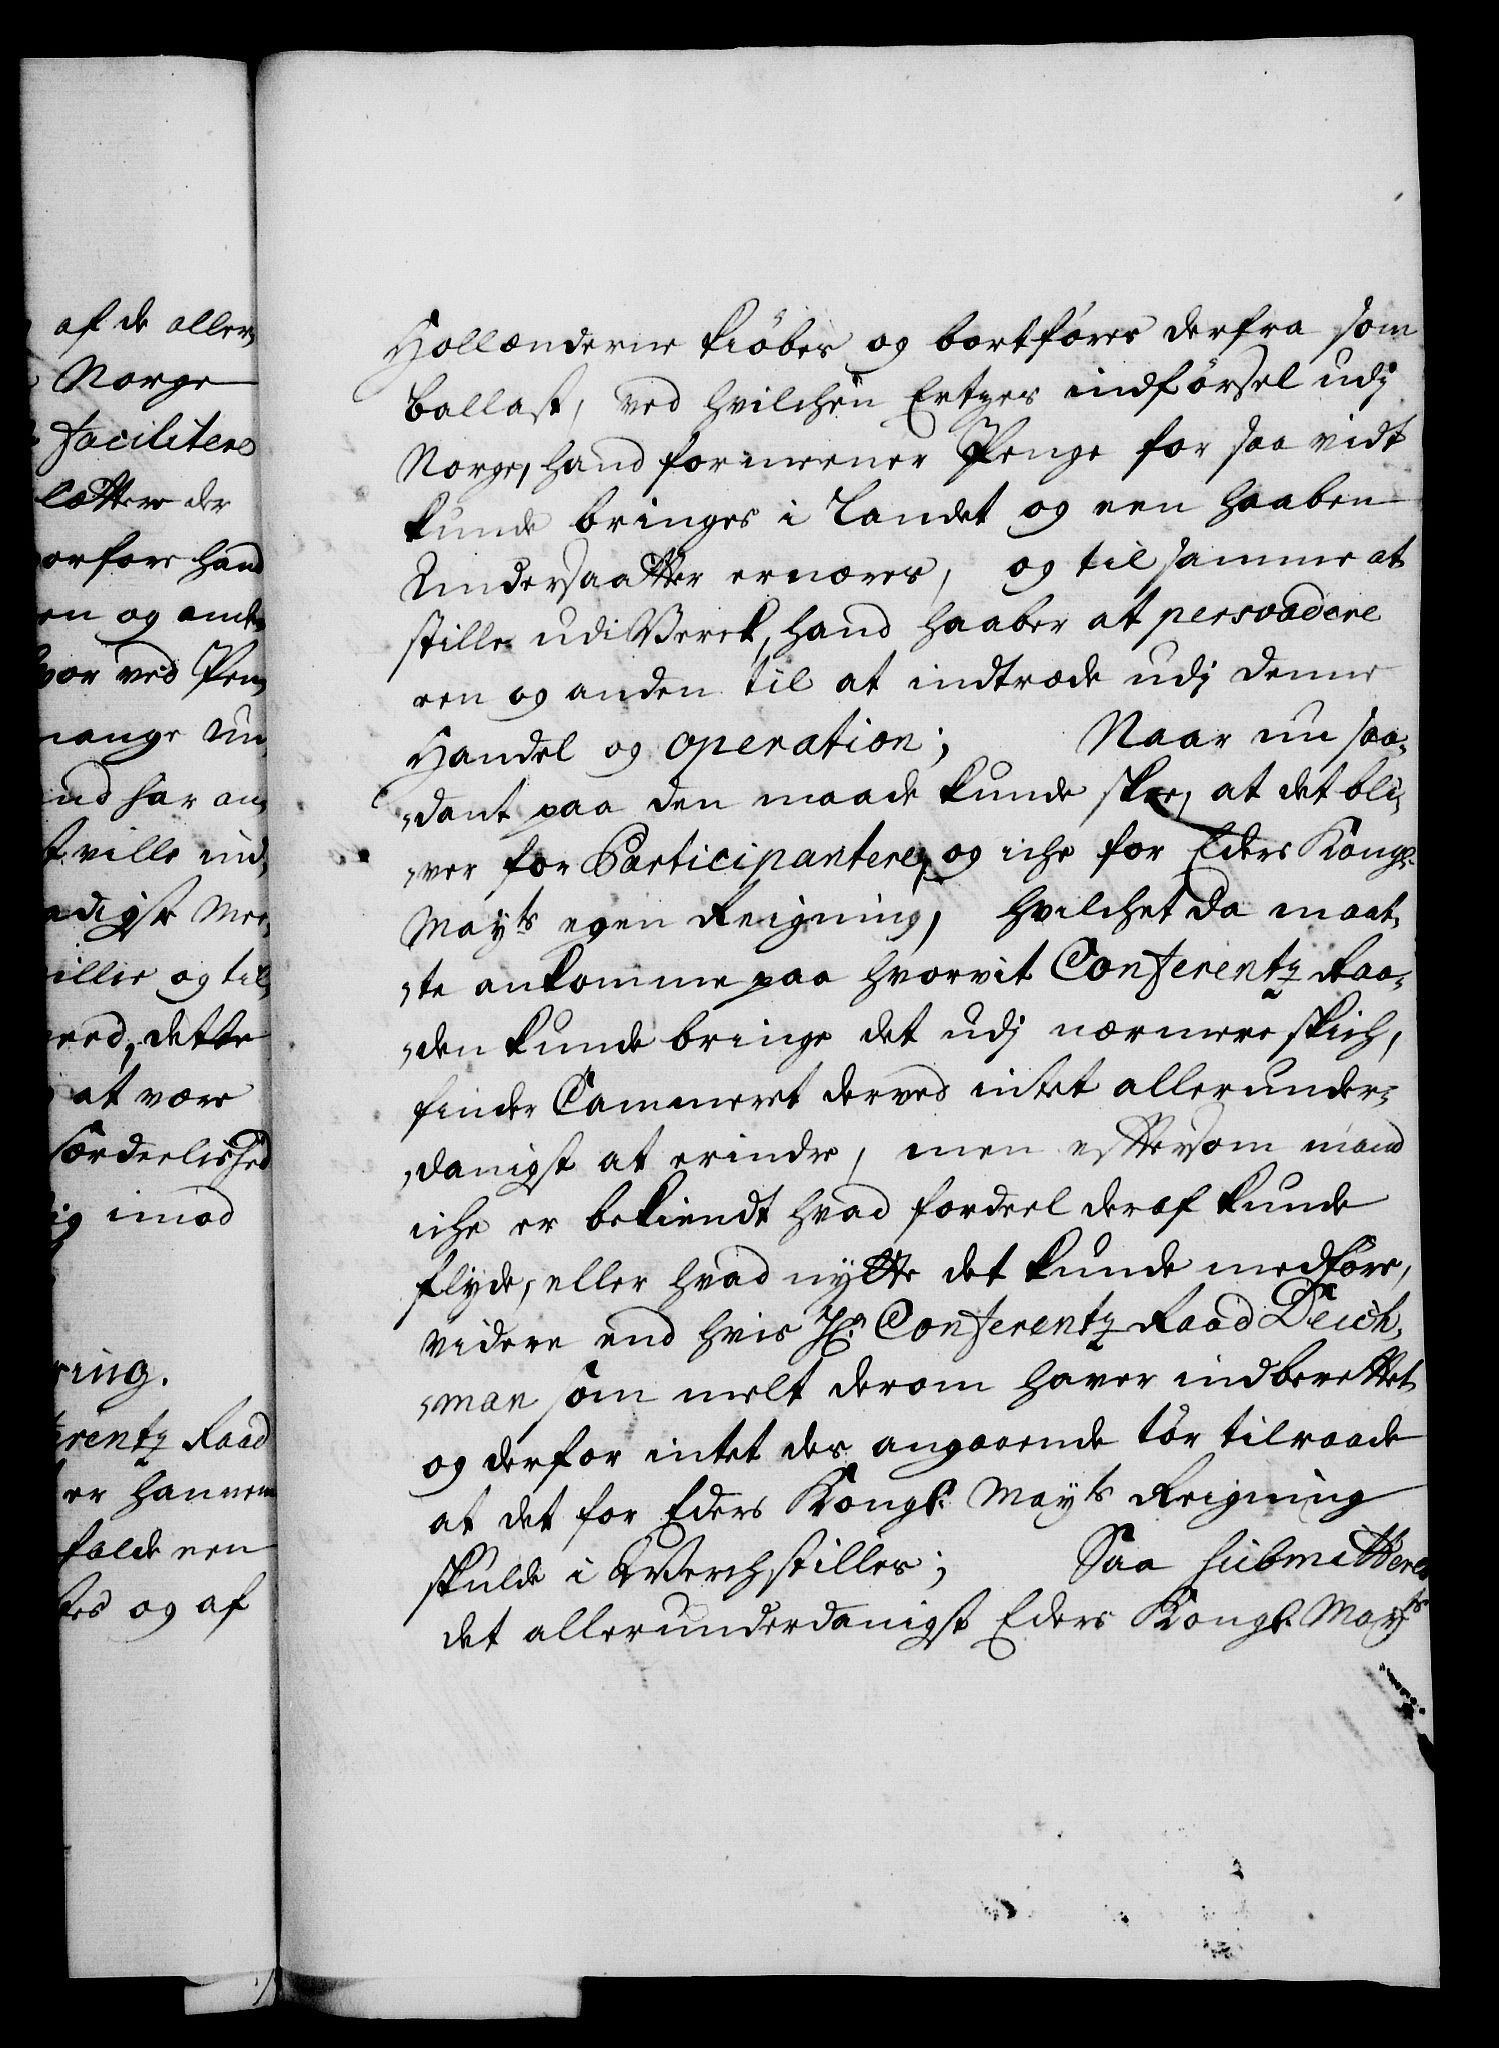 af de aller,
Norge
facilitere
lættere der
orfore hand
en og ande
vor ved Pen,
mange Un,
ind har an,
t ville ind,
adigst Mee,
iller og til,
eed, dette
at være
særdeelished
ig imod
ring.
erentz Raad
er hannem
falde een
tes og af
Hollænderne kiöbes og bortföres derfra som
Ballast, ved hvilchen Ertzes indförsel udj
Norge, hand formeener Penge for saa vidt
kunde bringes i Landet og een haaben
Undersaatter ernæres, og til samme at
stille udi Verck, hand haaber at persvadere
een og anden til at indtræde udj denne
Handel og operation; Naar nu saa,
,dant paa den maade kunde skee, at det bli,
,ver for Participantere, og iche for Eders Kongl.
Mayts egen Reigning, hvilchet da maat,
,te ankomme paa hvorvit Conferentz Raa,
,den kunde bringe det udj nærmere skich,
finder Cammeret derved intet allerunder,
,danigst at erindre, men eftersom mand
iche er bekiendt hvad fordeel deraf kunde
flyde, eller hvad nytte det kunde medföre,
videre end hvis Hr. Conferentz Raad Deich,
,man som melt derom haver indberettet
og derfor intet des angaaende tör tilraade
at det for Eders Kongl. Mayts Reigning
skulde i Werchstilles; Saa submitteres
det allerunderdanigst Eders Kongl. Mayts